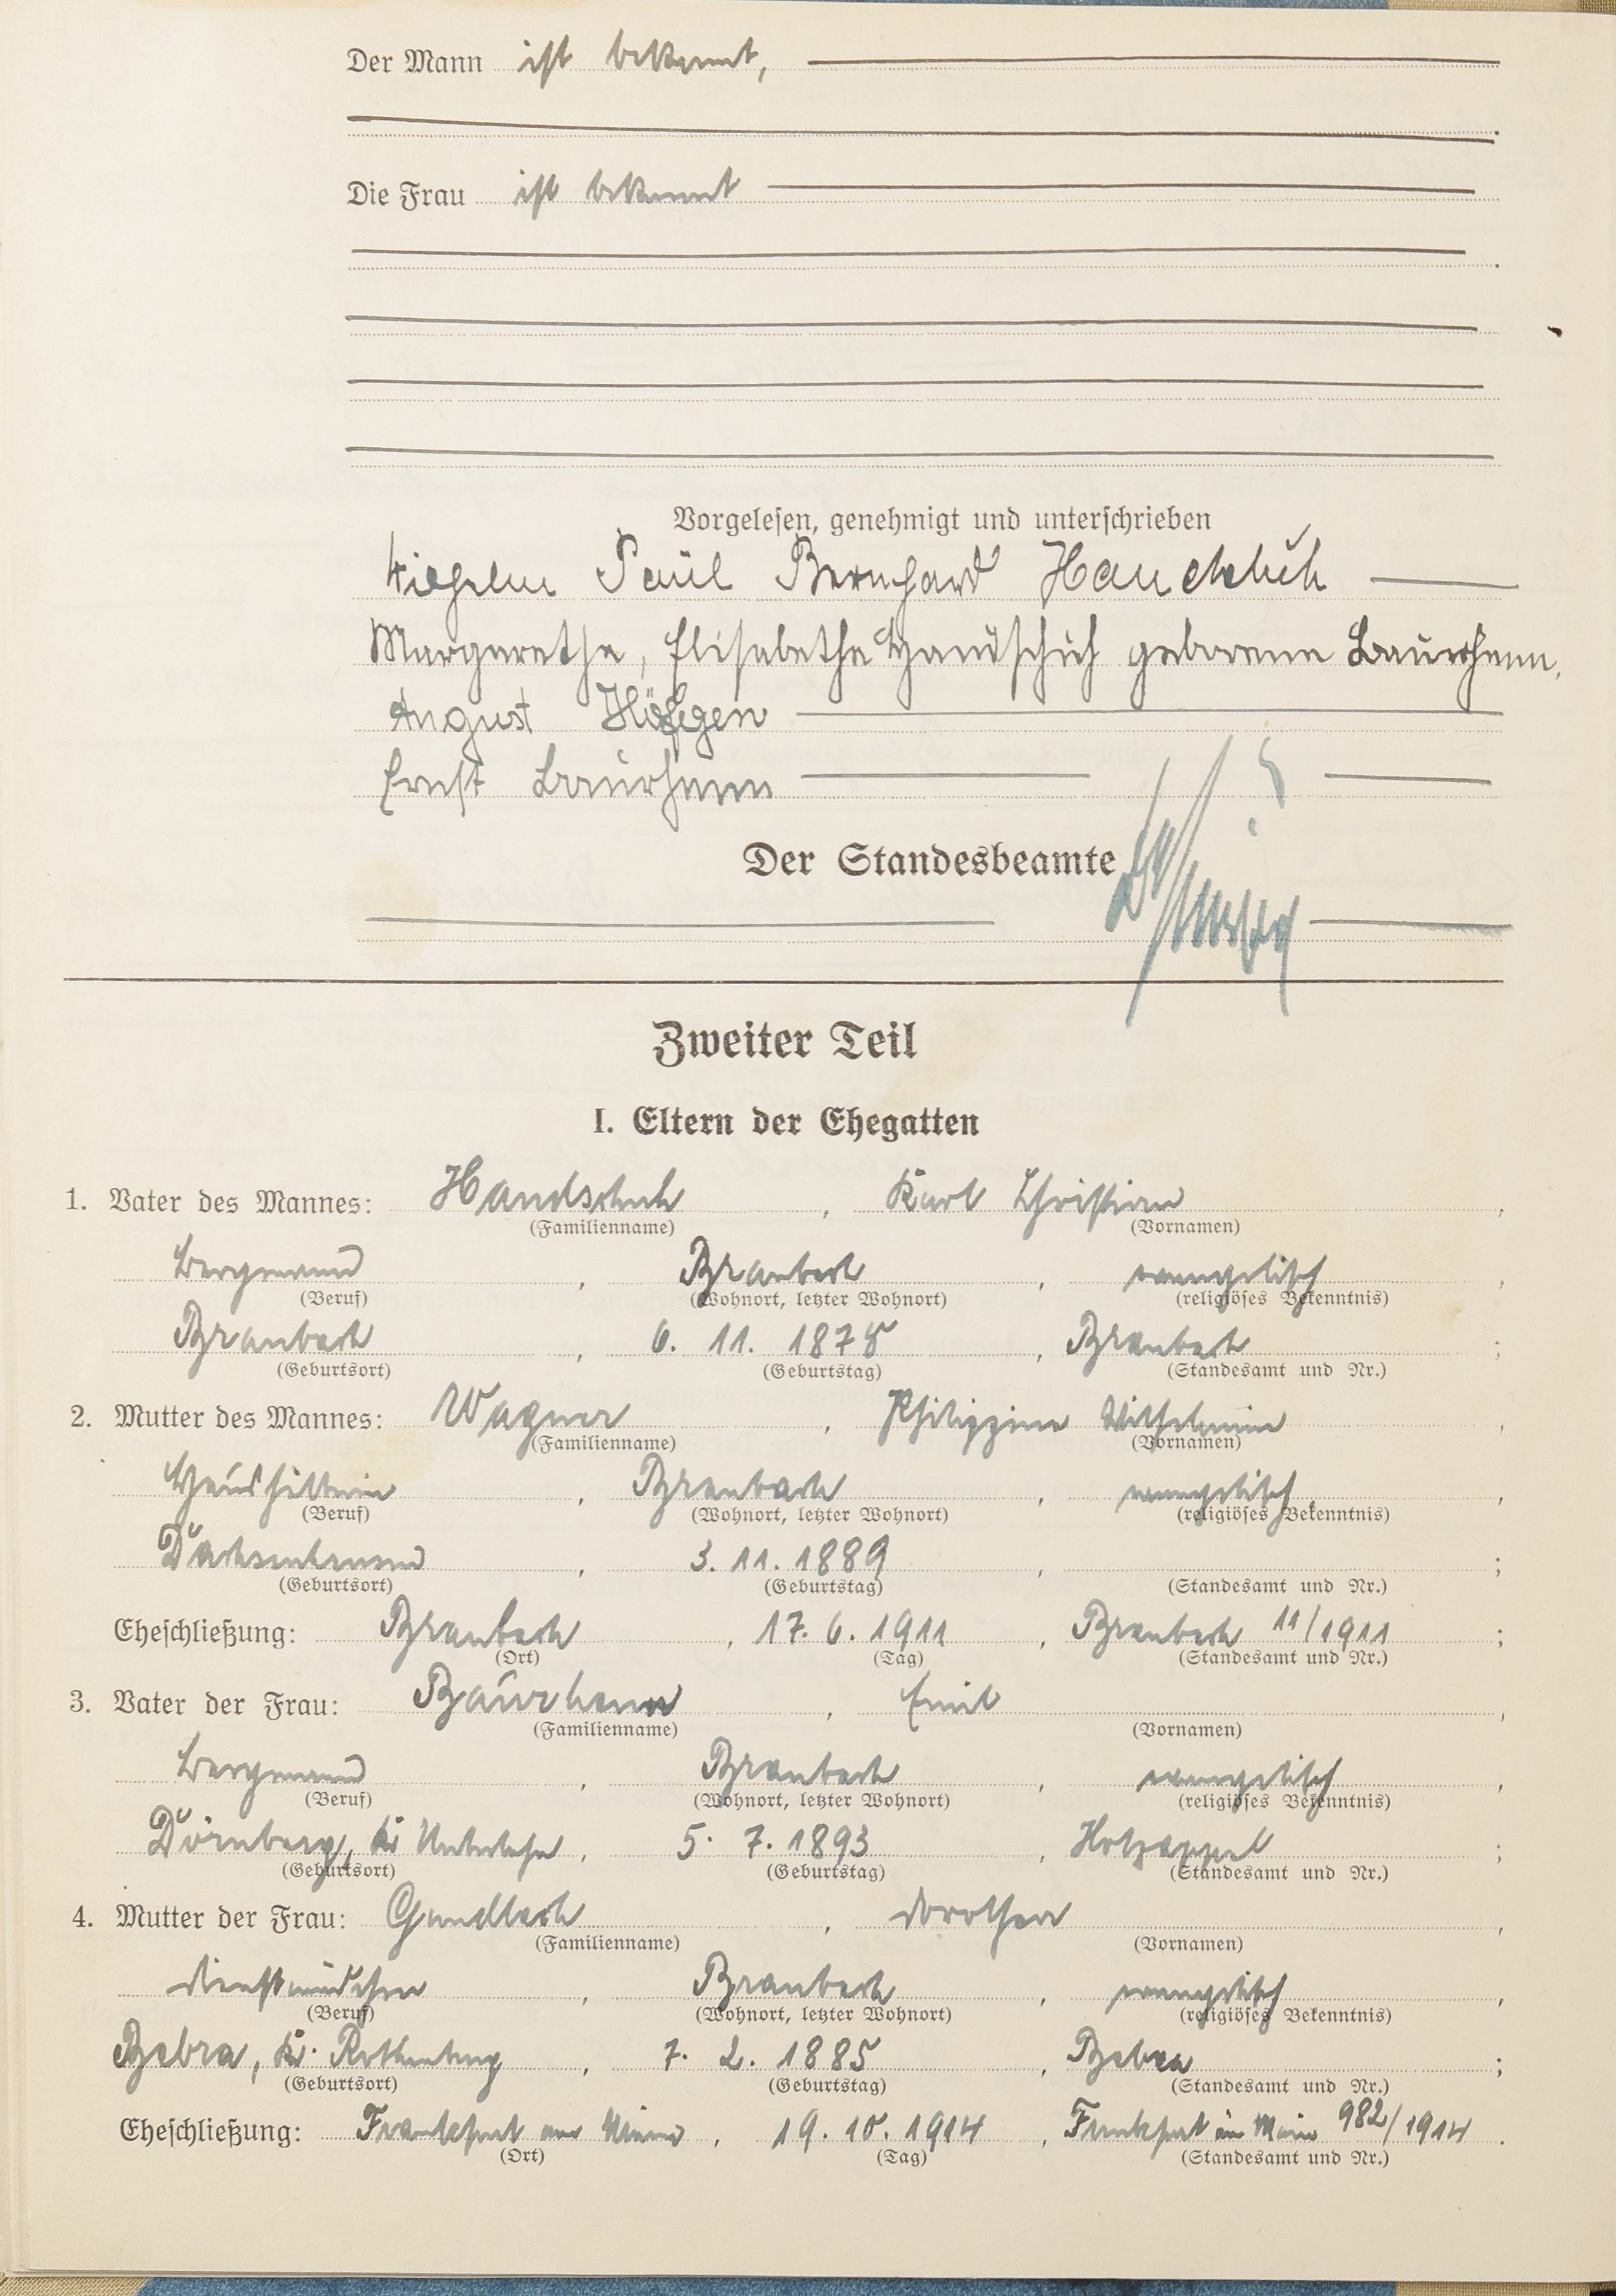 Der Mann ist bekannt,
Die Frau ist bekannt
Vorgelesen, genehmigt und unterschrieben
Paul Bernhard
Margarethe, Elisabethe Handschuh geborene Baurhenn,
August Höfgen
Ernst Baurhenn
Der Standesbeamte
Zweiter Teil
I. Eltern der Ehegatten
1. Vater des Mannes: Handschuh, Karl Christian,
(Familienname) (Vornamen)
Bergmann, Braubach, evangelisch,
(Beruf) (Wohnort, letzter Wohnort) (religiöses Bekenntnis)
Braubach, 6. 11. 1878, Braubach;
(Geburtsort) (Geburtstag) (Standesamt und Nr.)
2. Mutter des Mannes: Wagner, Philippine Wilhelmine,
(Familienname) (Vornamen)
Braubach, evangelisch,
(Beruf) (Wohnort, letzter Wohnort) (religiöses Bekenntnis)
Dachsenhausen, 3. 11. 1889, ;
(Geburtsort) (Geburtstag) (Standesamt und Nr.)
Eheschließung: Braubach, 17. 6. 1911, Braubach 11/1911;
(Ort) (Tag) (Standesamt und Nr.)
3. Vater der Frau: Baurhenn, Emil,
(Familienname) (Vornamen)
Bergmann, Braubach, evangelisch,
(Beruf) (Wohnort, letzter Wohnort) (religiöses Bekenntnis)
Dörnberg, Kr Unterlahn, 5. 7. 1893, Holzappel;
(Geburtsort) (Geburtstag) (Standesamt und Nr.)
4. Mutter der Frau: Gundlach, Dorothea,
(Familienname) (Vornamen)
Dienstmädchen, Braubach, evangelisch,
(Beruf) (Wohnort, letzter Wohnort) (religiöses Bekenntnis)
Bebra, Kr. Rothenburg, 7. 2. 1885, Bebra;
(Geburtsort) (Geburtstag) (Standesamt und Nr.)
Eheschließung: Frankfurt am Main, 19. 10. 1914, Frankfurt am Main 982/1914.
(Ort) (Tag) (Standesamt und Nr.)